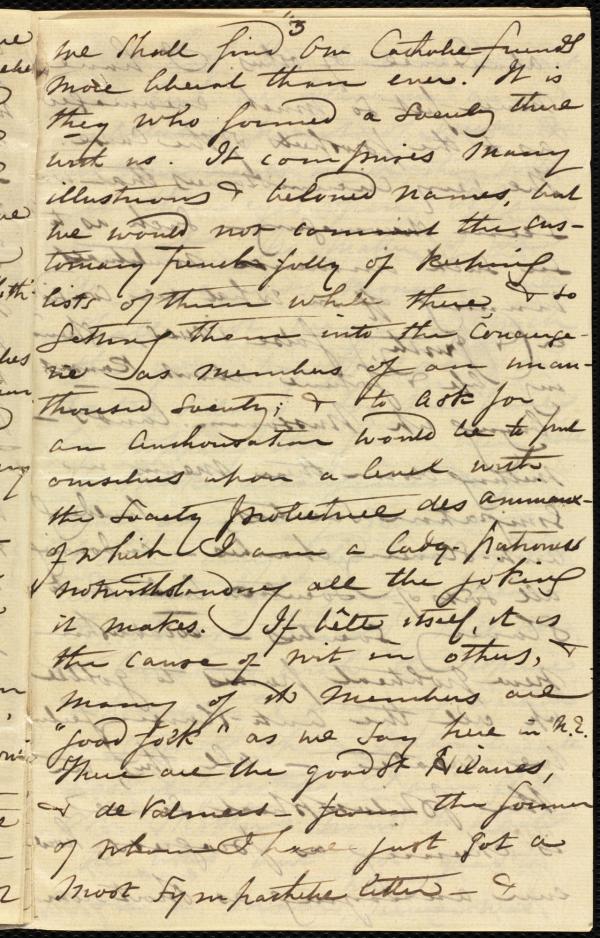 3
we shall find our Catholic friends
more liberal than ever. It is
they who formed a Society there
with us. It comprises many
illustrious & beloved names, but
we would not commit the cus-
tomary French folly of keeping
lists of them while there, & so
getting them into the Concierge-
rie as members of an unau-
thorised Society; & to ask for
an authorisation would be to put
ourselves upon a level with
the Society protectrice des animaux-
of which I am a lady-patroness
notwithstanding all the joking
it makes. If bête itself, it is
the cause of wit in others, &
many of its members are
"good folk" as we say here in N.E.
There are the good St Hilaires,
& de Valmers- from the former
of whom I have just got a
most sympathetic letter - &